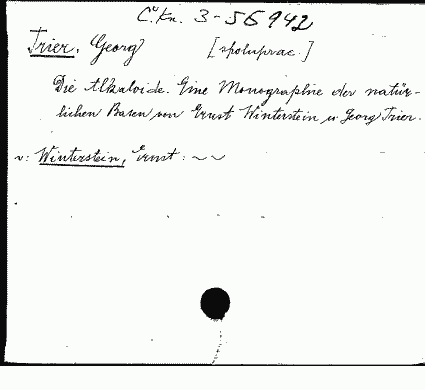 Č. kn. 3-56942
Trier, Georg [spoluprac.]
Die Alkaloide. Eine Monographie der natür-
lichen Basen von Ernst Winterstein u. Georg Trier.
v: Winterstein, Ernst: ~~